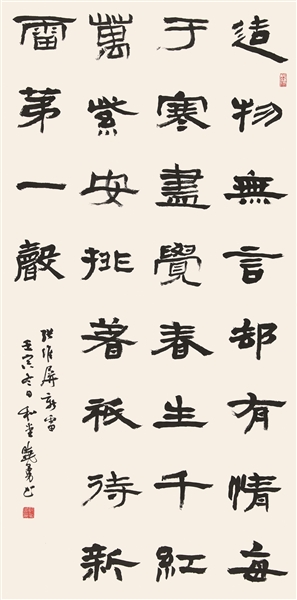 造物無言却有情每
于寒盡覺春生千紅
萬紫安排著祇待新
雷第一聲
張維屏新雷
壬寅冬日和堂曉勇书